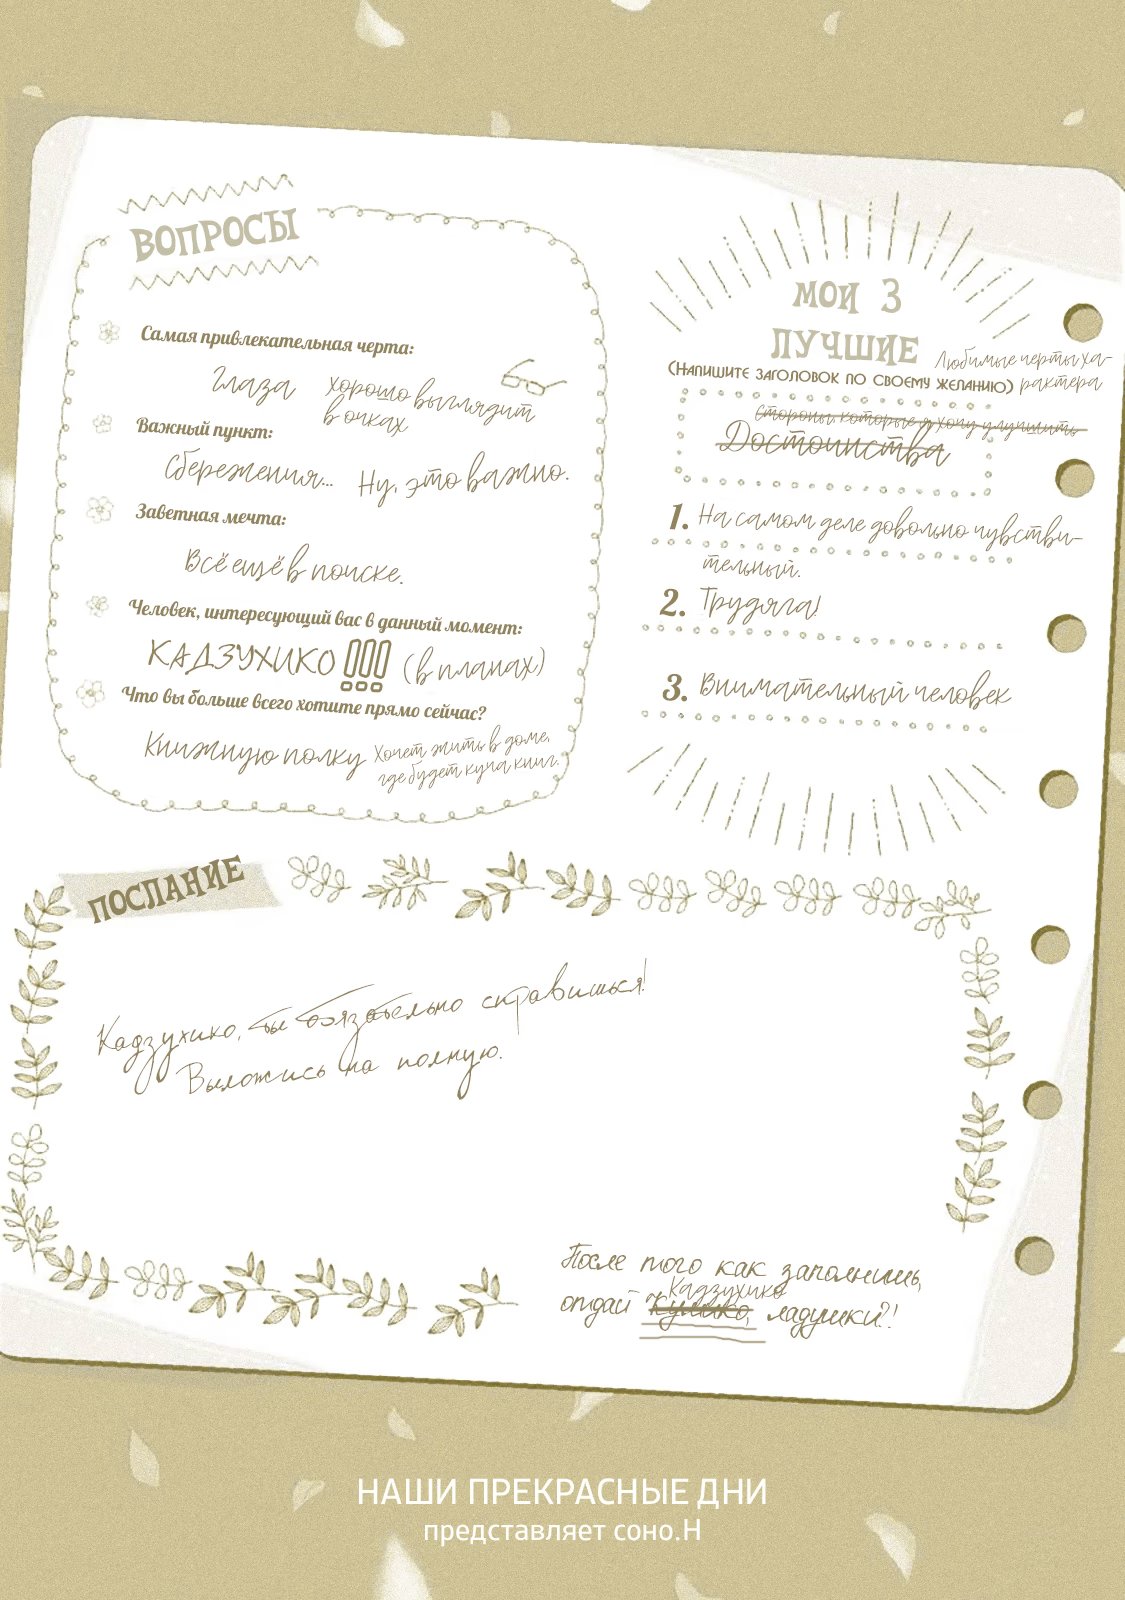 ВОПРОСЫ
Самая привлекательная черта:
Глаза
Хорошо выглядит
в очках
Важный пункт:
Сбережения...
Ну, это важно.
Заветная мечта:
Всё ещё в поиске.
Человек, интересующий вас в данный момент:
КАДЗУХИКО!!! (в планах)
Что вы больше всего хотите прямо сейчас?
Книжную полку
Хочет жить в доме,
где будет куча книг.
МОИ 3
ЛУЧШИЕ
(Напишите заголовок по своему желанию)
Любимые черты ха-
рактера
Стороны, которые я хочу улучшить
Достоинства
1. На самом деле довольно чувстви-
тельный.
2. Трудяга!
3. Внимательный человек
ПОСЛАНИЕ
Кадзухико, ты обязательно справишься!
Выложись на полную.
После того как заполнишь,
Кадзухико
отдай Кумико, ладушки?!
НАШИ ПРЕКРАСНЫЕ ДНИ
представляет соно.Н